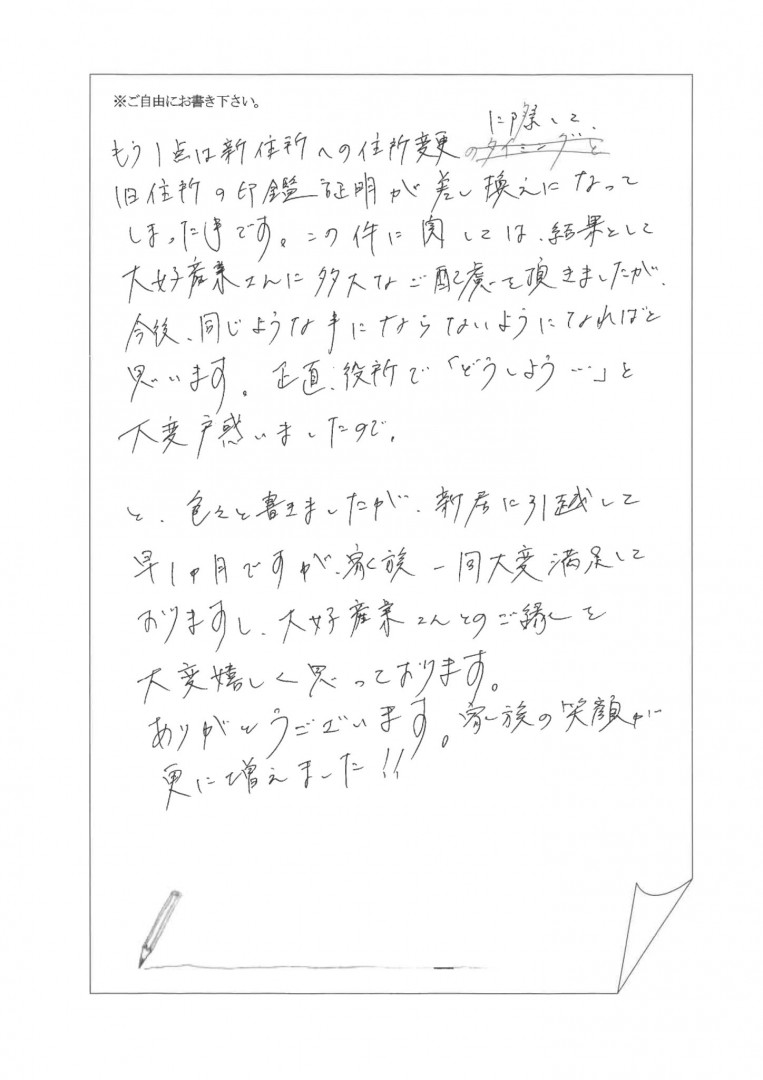 ※ご自由にお書き下さい。
に際して、
もう1点は新住所への住所変更のタイミングと
旧住所の印鑑証明が差し換えになって
しまった事です。この件に関しては、結果として
大好産業さんに多大なご配慮を頂きましたが、
今後、同じような事にならないようになればと
思います。正直、役所で「どうしよう…」と
大変戸惑いましたので。
と、色々と書きましたが、新居に引越して
早1ヶ月ですが、家族一同大変満足して
おりますし、大好産業さんとのご縁を
大変嬉しく思っております。
ありがとうございます。家族の笑顔が
更に増えました!!